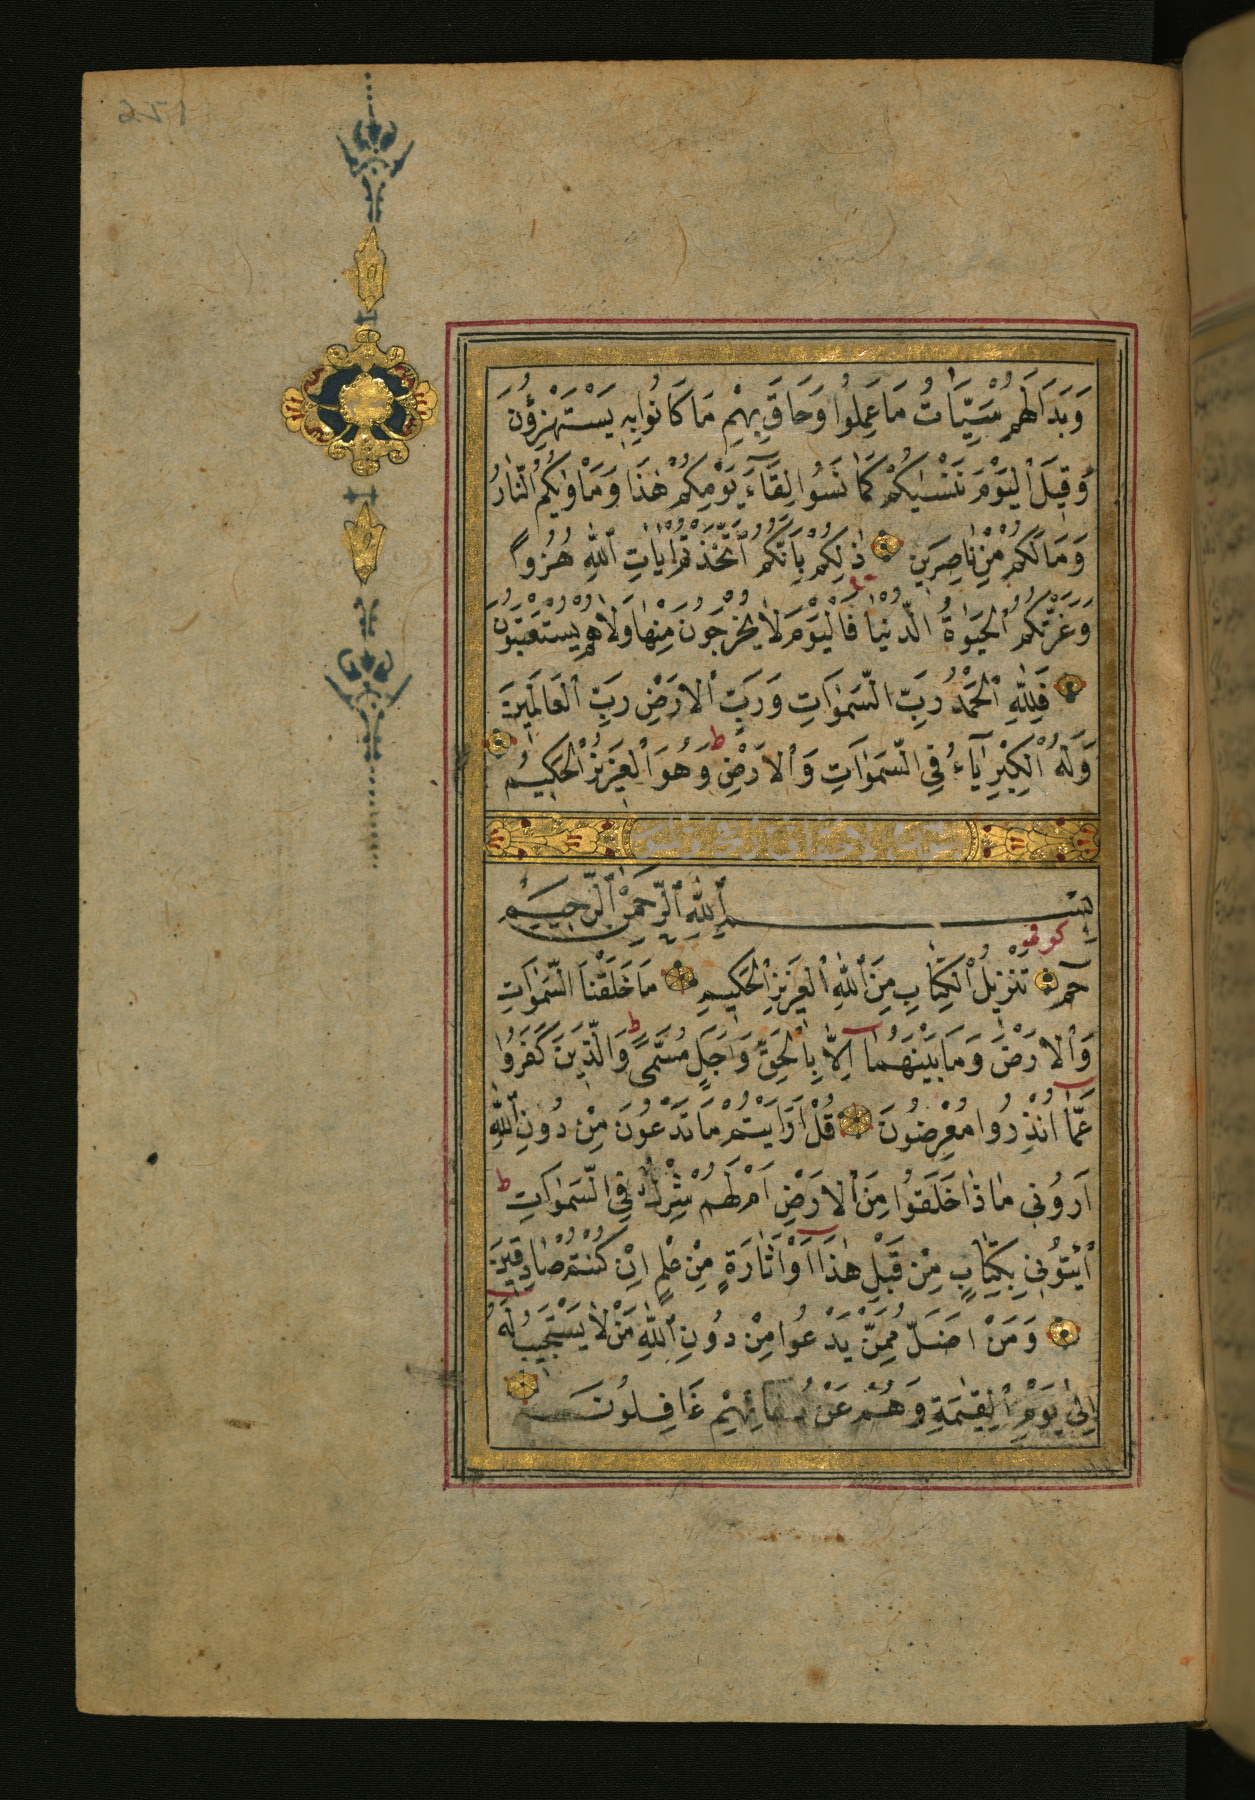 وَبَدَا لَهُمْ سَيِّـَٔاتُ مَا عَمِلُوا وَحَاقَ بِهِمْ مَا كَانُوا بِهِ يَسْتَهْزِؤُنَ
وَقِيلَ ٱلْيَوْمَ نَنْسٰيكُمْ كَمَا نَسُوا لِقَآءَ يَوْمِكُمْ هٰذَا وَمَأْوٰيكُمُ ٱلنَّارُ
وَمَالَكُمْ مِنْ نَاصِرِينَ ذٰلِكُمْ بِاَنَّكُمُ ٱتَّخَذْتُمْ اٰيَاتِ ٱللّٰهِ هُزُوًا
وَغَرَّتْكُمُ ٱلْحَيٰوةُ ٱلدُّنْيَا فَالْيَوْمَ لَا يُخْرَجُونَ مِنْهَا وَلَا هُمْ يُسْتَعْتَبُونَ
فَلِلّٰهِ ٱلْحَمْدُ رَبِّ ٱلسَّمٰوَاتِ وَرَبِّ ٱلْاَرْضِ رَبِّ ٱلْعَالَمِينَ
وَلَهُ ٱلْكِبْرِيَآءُ فِي ٱلسَّمٰوَاتِ وَٱلْاَرْضِ ط وَهُوَ ٱلْعَزِيزُ ٱلْحَكِيمُ
بِسْمِ ٱللّٰهِ ٱلرَّحْمٰنِ ٱلرَّحِيمِ
كوفى
حٰمٓ تَنْزِيلُ ٱلْكِتَابِ مِنَ ٱللّٰهِ ٱلْعَزِيزِ ٱلْحَكِيمِ مَا خَلَقْنَا ٱلسَّمٰوَاتِ
وَٱلْاَرْضَ وَمَا بَيْنَهُمَا اِلَّا بِالْحَقِّ وَاَجَلٍ مُسَمًّى ط وَالَّذِينَ كَفَرُوا
عَمَّا اُنْذِرُوا مُعْرِضُونَ قُلْ اَرَاَيْتُمْ مَا تَدْعُونَ مِنْ دُونِ ٱللّٰهِ
اَرُونِي مَاذَا خَلَقُوا مِنَ ٱلْاَرْضِ اَمْ لَهُمْ شِرْكٌ فِي ٱلسَّمٰوَاتِ ط
ٱئْتُونِي بِكِتَابٍ مِنْ قَبْلِ هٰذَا اَوْ اَثَارَةٍ مِنْ عِلْمٍ اِنْ كُنْتُمْ صَادِقِينَ
وَمَنْ اَضَلُّ مِمَّنْ يَدْعُوا مِنْ دُونِ ٱللّٰهِ مَنْ لَا يَسْتَجِيبُ لَهُ
اِلٰى يَوْمِ ٱلْقِيٰمَةِ وَهُمْ عَنْ دُعَائِهِمْ غَافِلُونَ